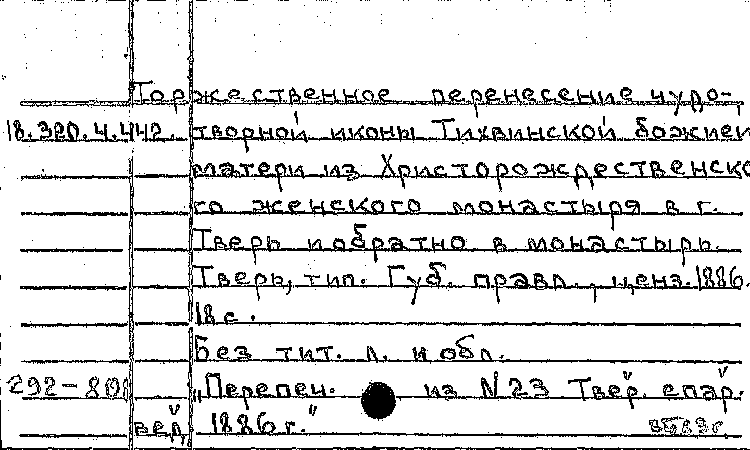 Торжественное перенесение чудо-
18.320.4.442. творной иконы Тихвинской божией
матери из Христорождественско
го женского монастыря в г.
Тверь и обратно в монастырь.
Тверь, тип. Губ. правл., ценз. 1886.
18 с.
Без тит. л. и обл.
292-808 „Перепеч. из N 23 Твер. епар.
вед. 1886 г."